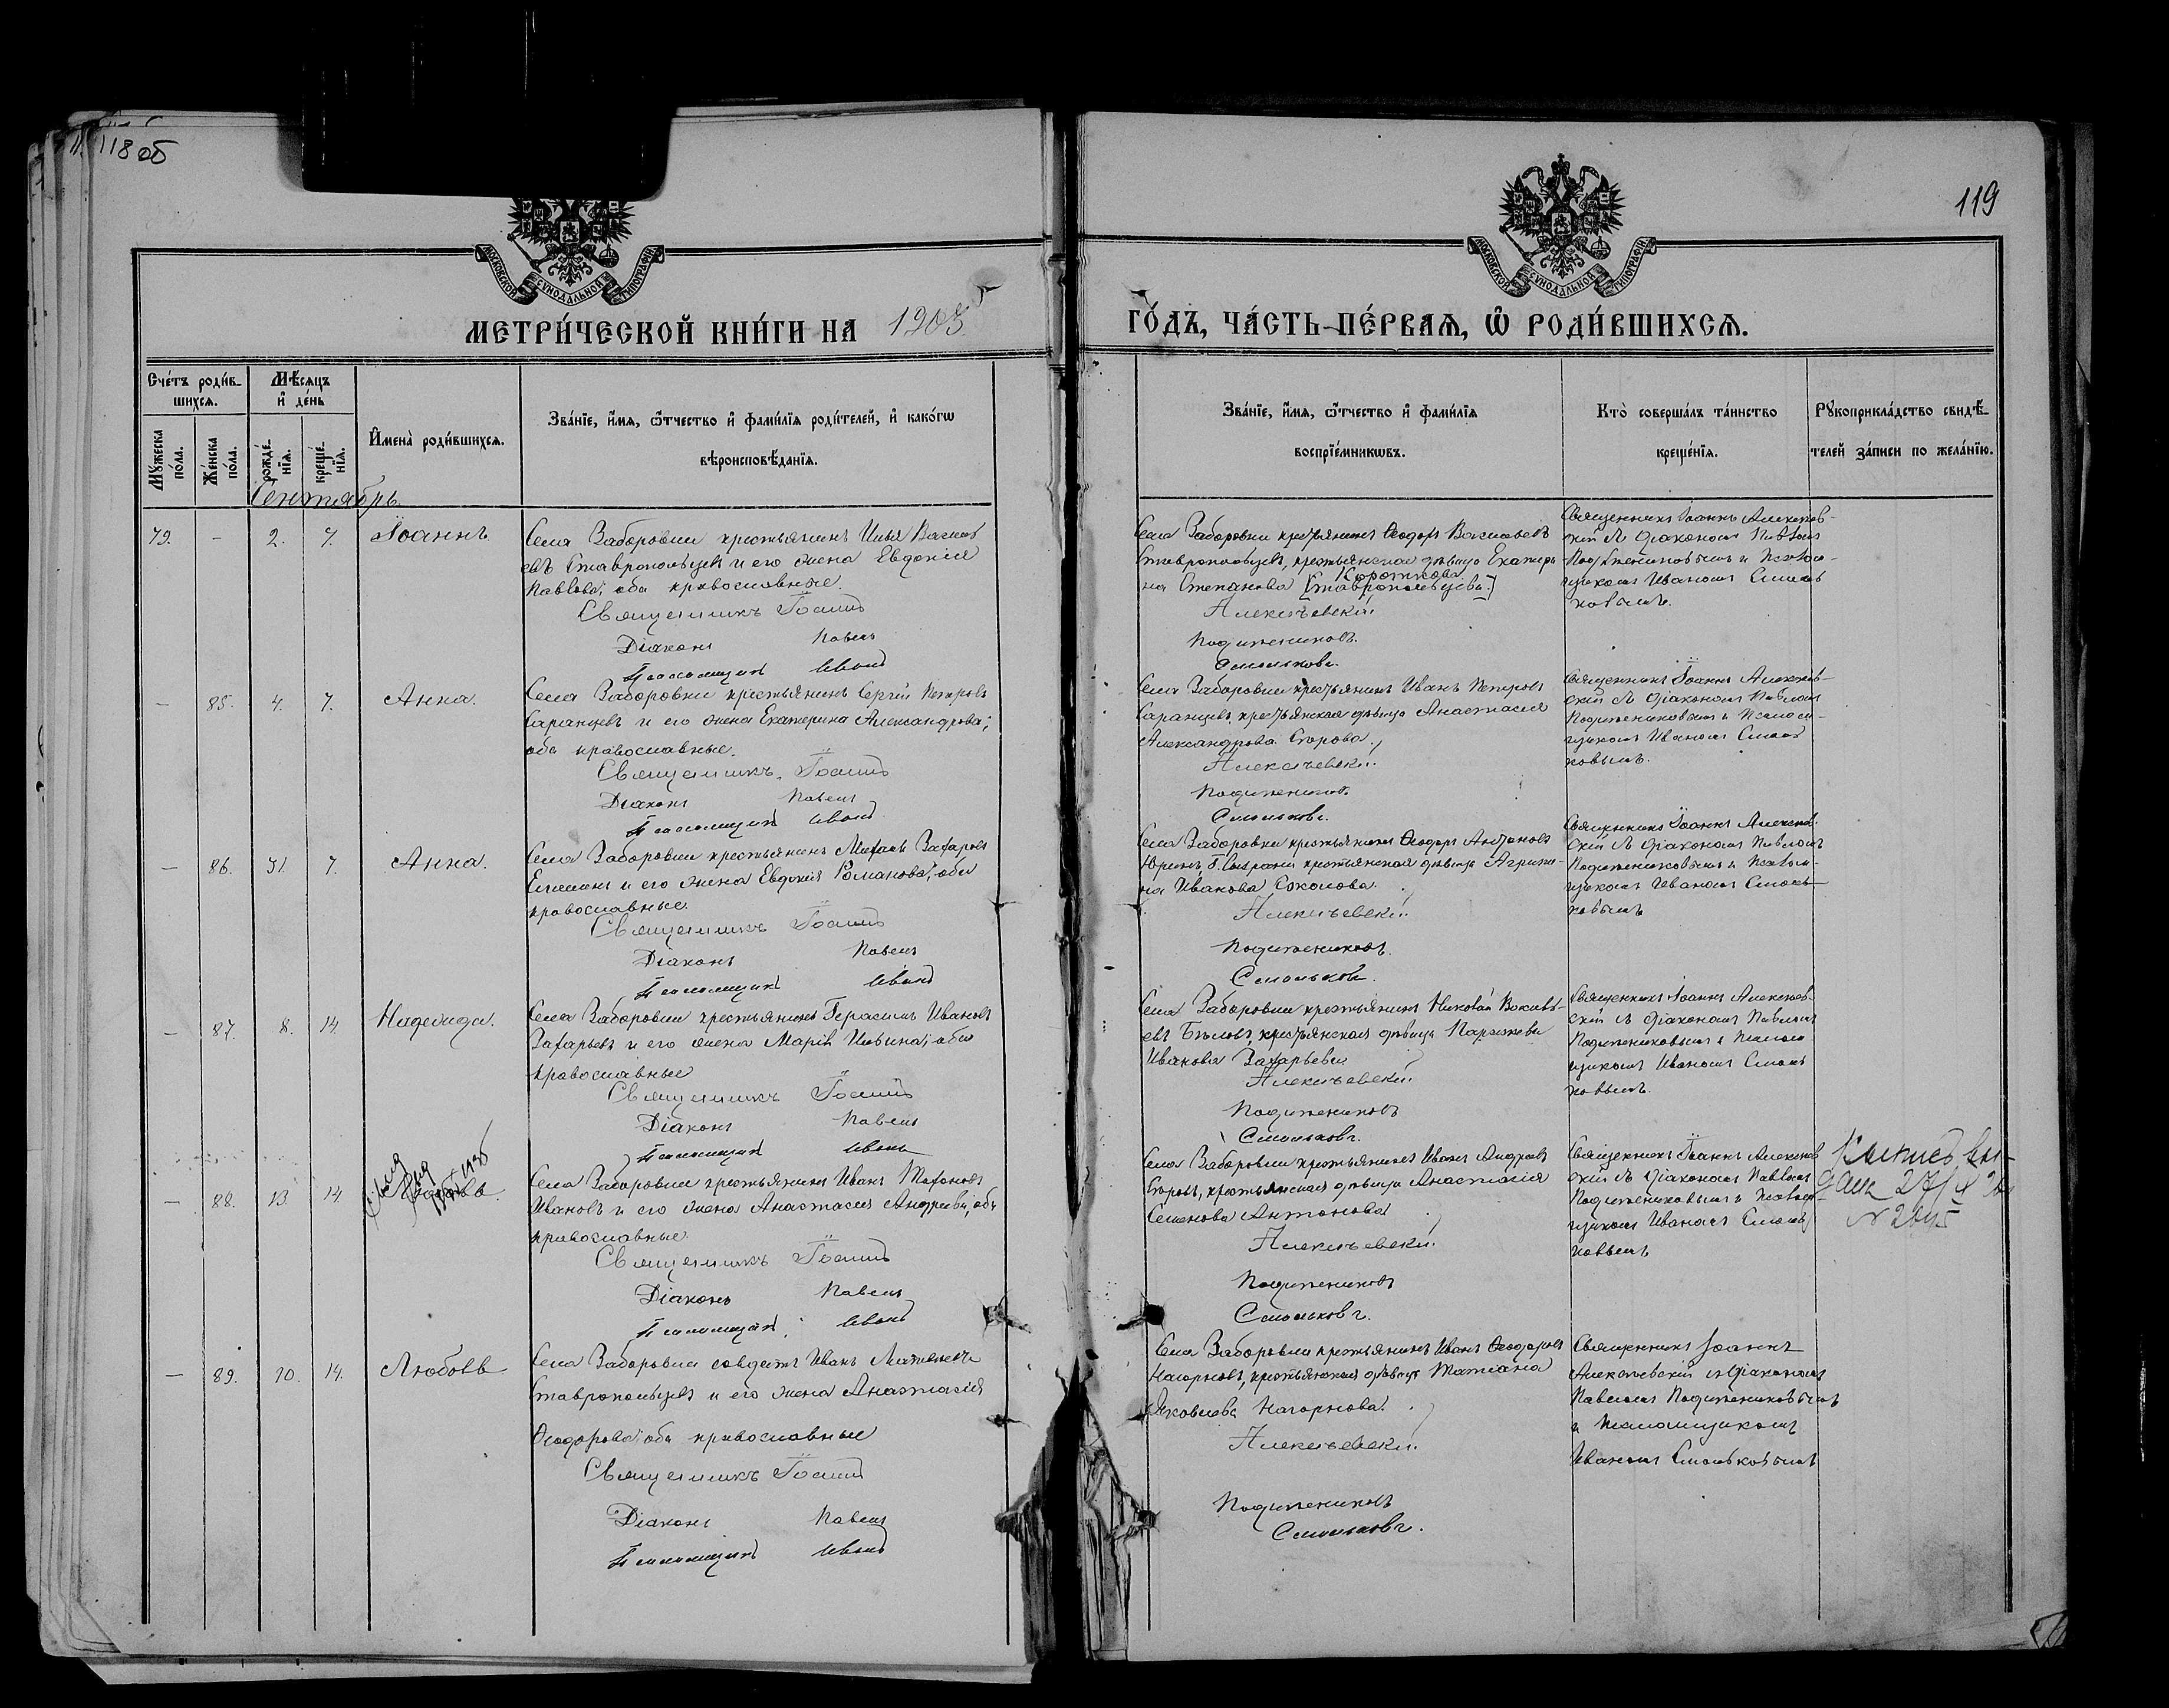 118 об
119
МОСКОВСКОЙ СѴНОДАЛЬНОЙ ТИПОГРАФІИ
МОСКОВСКОЙ СѴНОДАЛЬНОЙ ТИПОГРАФІИ
МЕТРИ́ЧЕСКОЙ КНИ́ГИ НА 1903
ГО́ДЪ, ЧА́СТЬ ПЕ́РВАЯ, Ѿ РОДИ́ВШИХСЯ.
Сче́тъ роди́в-
шихся.
Мѣ́сяцъ
и де́нь
Мꙋ́жеска
по́ла.
Же́нска
по́ла.
рожде́-
нїя.
креще́-
нїя.
Имена̀ роди́вшихся.
Зва́нїе, и́мя, ѻ́тчество и фами́лїя роди́телей, и како́гѡ
вѣроисповѣ́данїя.
Зва́нїе, и́мя, ѻ́тчество и фами́лїя
воспрїе́мникѡвъ.
Кто̀ соверша́лъ та́инство
креще́нїя.
Рꙋкоприкла́дство свидѣ́-
телей за́писи по жела́нїю.
Сентябрь
79. - 2. 7. Іоаннъ
Села Заборовки крестьянинъ Илья Василь
евъ Ставропольцевъ и его жена Евдокія
Павлова, оба православные.
Священникъ Іоаннъ
Діаконъ Павелъ
Псаломщикъ Иванъ
Села Заборовки крестьянинъ Ѳеодоръ Васильевъ
Ставропольцевъ, крестьянская дѣвица Екатери
на Степанова Короткова [Ставропольцева.]
Алексѣевскій
Подъжениковъ.
Смольковъ.
Священникъ Іоаннъ Алексѣев-
скій съ діакономъ Павломъ
Подъжениковымъ и псалом-
щикомъ Иваномъ Смоль
ковымъ.
— 85. 4. 7. Анна.
Села Заборовки крестьянинъ Сергій Петровъ
Саранцевъ и его жена Екатерина Александрова;
оба православные.
Священникъ Іоаннъ
Діаконъ Павелъ
Псаломщикъ Иванъ
Села Заборовки крестьянинъ Иванъ Петровъ
Саранцевъ, крестьянская дѣвица Анастасія
Александрова Егорова.
Алексѣевскій
Подъжениковъ.
Смольковъ.
Священникъ Іоаннъ Алексѣев-
скій съ діакономъ Павломъ
Подъжениковымъ и псалом-
щикомъ Иваномъ Смоль
ковымъ.
— 86. 7. Анна.
Села Заборовки крестьянинъ Михаилъ Захаровъ
и его жена Евдокія Романова, оба
православные
Священникъ Іоаннъ
Діаконъ Павелъ
Псаломщикъ Иванъ
Села Заборовки крестьянинъ Ѳеодоръ Антоновъ
Юринъ, Г. Сызрани крестьянская дѣвица Агрипи-
на Иванова Соколова
Алексѣевскій
Подъжениковъ.
Смольковъ.
Священникъ Іоаннъ Алексѣев-
скій съ діакономъ Павломъ
Подъжениковымъ и псалом-
щикомъ Иваномъ Смоль-
ковымъ
— 87. 8. 14. Надежда.
Села Заборовки крестьянинъ Герасимъ Ивановъ
Захарьевъ и его жена Марія Ильина, оба
православные
Священникъ Іоаннъ
Діаконъ Павелъ
Псаломщикъ Иванъ
Села Заборовки крестьянинъ Николай Василь-
евъ Бѣловъ, крестьянская дѣвица Параскева
Иванова Захарьева
Алексѣевскій
Подъжениковъ
Смольковъ.
Священникъ Іоаннъ Алексѣев-
скій съ діакономъ Павломъ
Подъжениковымъ и псалом
щикомъ Иваномъ Смоль
ковымъ.
— 88. 13 14 Любовь.
Села Заборовки крестьянинъ Иванъ
Ивановъ и его жена Анастасія Андреева, оба
православные
Священникъ Іоаннъ
Діаконъ Павелъ
Псаломщикъ Иванъ
Села Заборовки крестьянинъ Иванъ Андреевъ
Егоровъ, крестьянская дѣвица Анастасія
Семенова Антонова
Алексѣевскій
Подъжениковъ
Смольковъ.
Священникъ Іоаннъ Алексѣев
скій съ діакономъ Павломъ
Подъжениковымъ и псалом-
щикомъ Иваномъ Смоль
ковымъ
— 89. 10. 14. Любовь
Села Заборовки солдатъ Иванъ
Ставропольцевъ и его жена Анастасія
Ѳеодорова, оба православные
Священникъ Іоаннъ
Діаконъ Павелъ
Псаломщикъ Иванъ
Села Заборовки крестьянинъ Иванъ Ѳеодоровъ
Нагорновъ, крестьянская дѣвица Татіана
Яковлева Нагорнова.
Алексѣевскій
Подъжениковъ
Смольковъ.
Священникъ Іоаннъ
Алексѣевскій съ діакономъ
Павломъ Подъжениковымъ
и псаломщикомъ
Иваномъ Смольковымъ